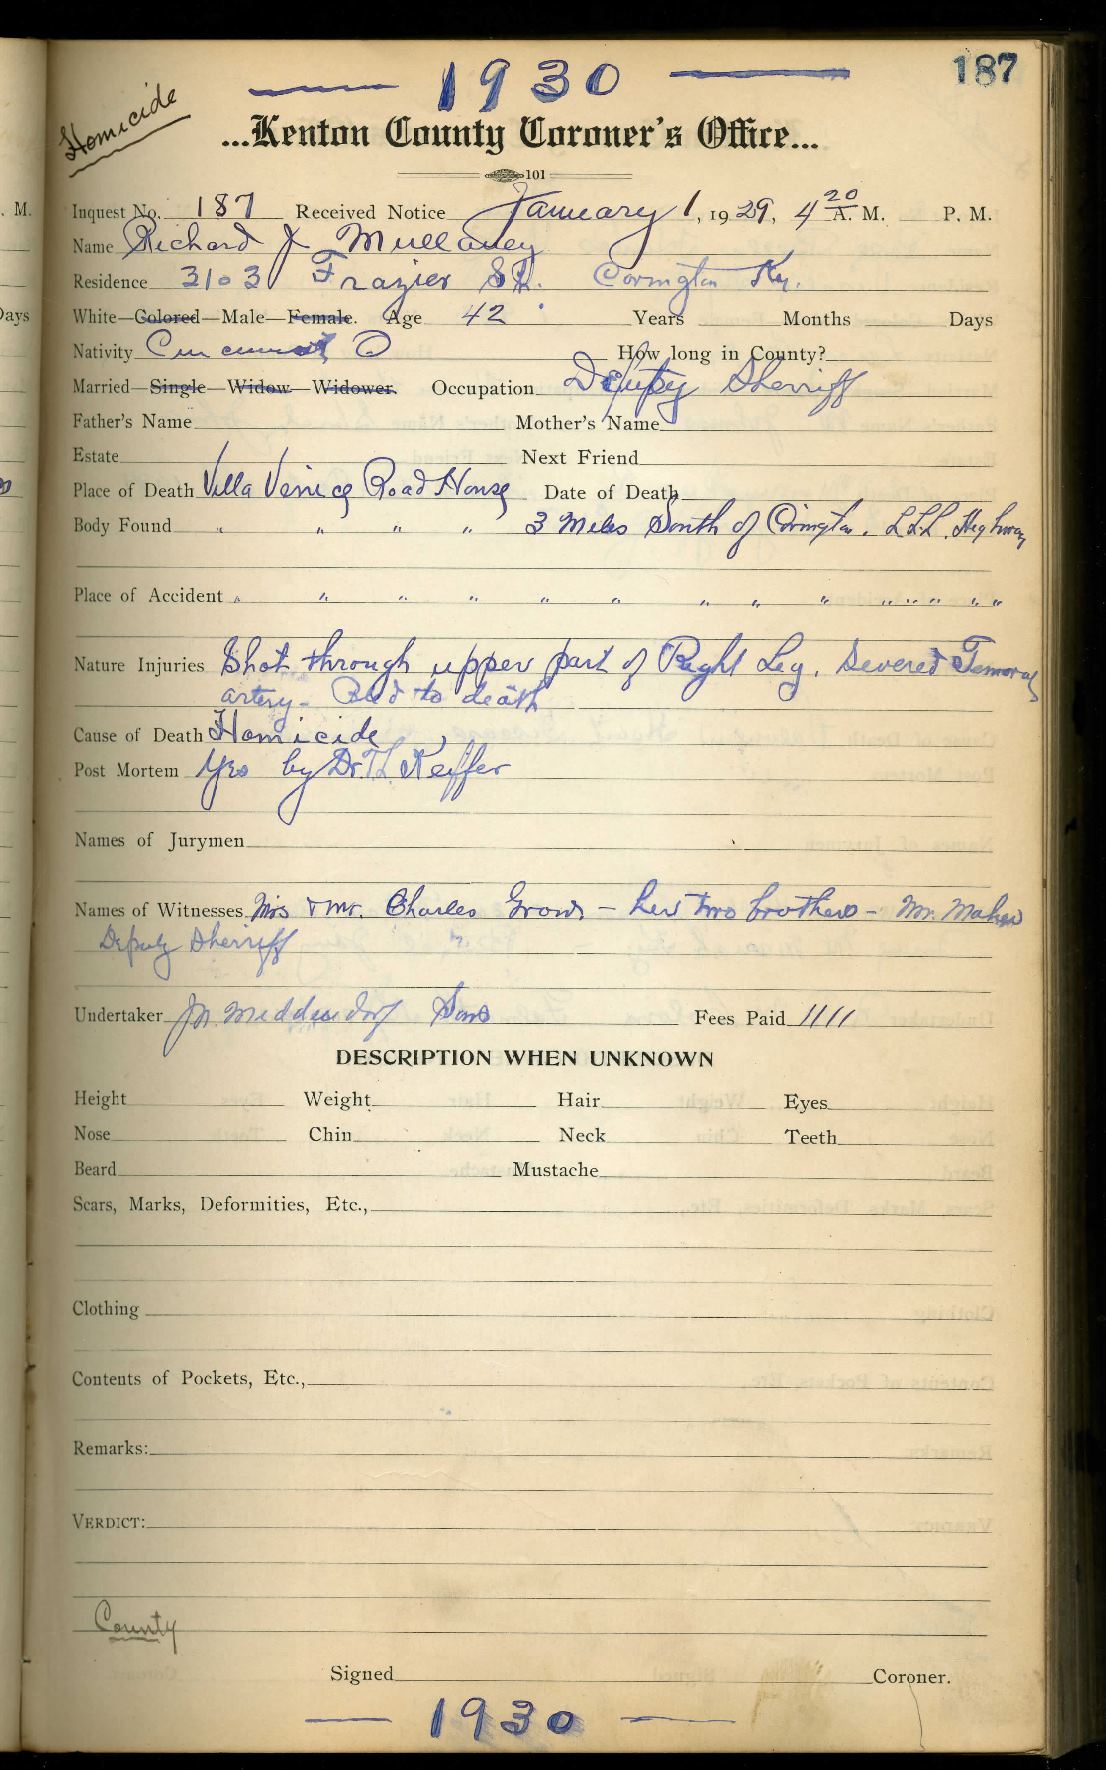 1930
187
Homicide
...Kenton County Coroner's Office...
101
Inquest No. 187 Received Notice January 1, 1929, 4 20 A. M. P. M.
Name Richard J Mullaney
Residence 3103 Frazier St. Covington Ky.
White—Colored—Male—Female. Age 42 Years Months Days
Nativity O How long in County?
Married—Single—Widow—Widower. Occupation Deputy Sherriff
Father's Name Mother's Name
Estate Next Friend
Place of Death Villa Venice Road House Date of Death
Body Found " " " " 3 Miles South of Covington. L.L.L. Highway
Place of Accident " " " " " " " " " " " " " "
Nature Injuries Shot through upper part of Right Leg. Severed Femoral
artery - Bled to death
Cause of Death Homicide
Post Mortem Yes by Dr. T L Keiffer
Names of Jurymen
Names of Witnesses Mrs & Mr. Charles - her two brothers - Mr. Maher
Deputy Sherriff
Undertaker Middendorf Sons Fees Paid
DESCRIPTION WHEN UNKNOWN
Height Weight Hair Eyes
Nose Chin Neck Teeth
Beard Mustache
Scars, Marks, Deformities, Etc.,
Clothing
Contents of Pockets, Etc.,
Remarks:
VERDICT:
County
Signed Coroner.
1930
. M.
Days